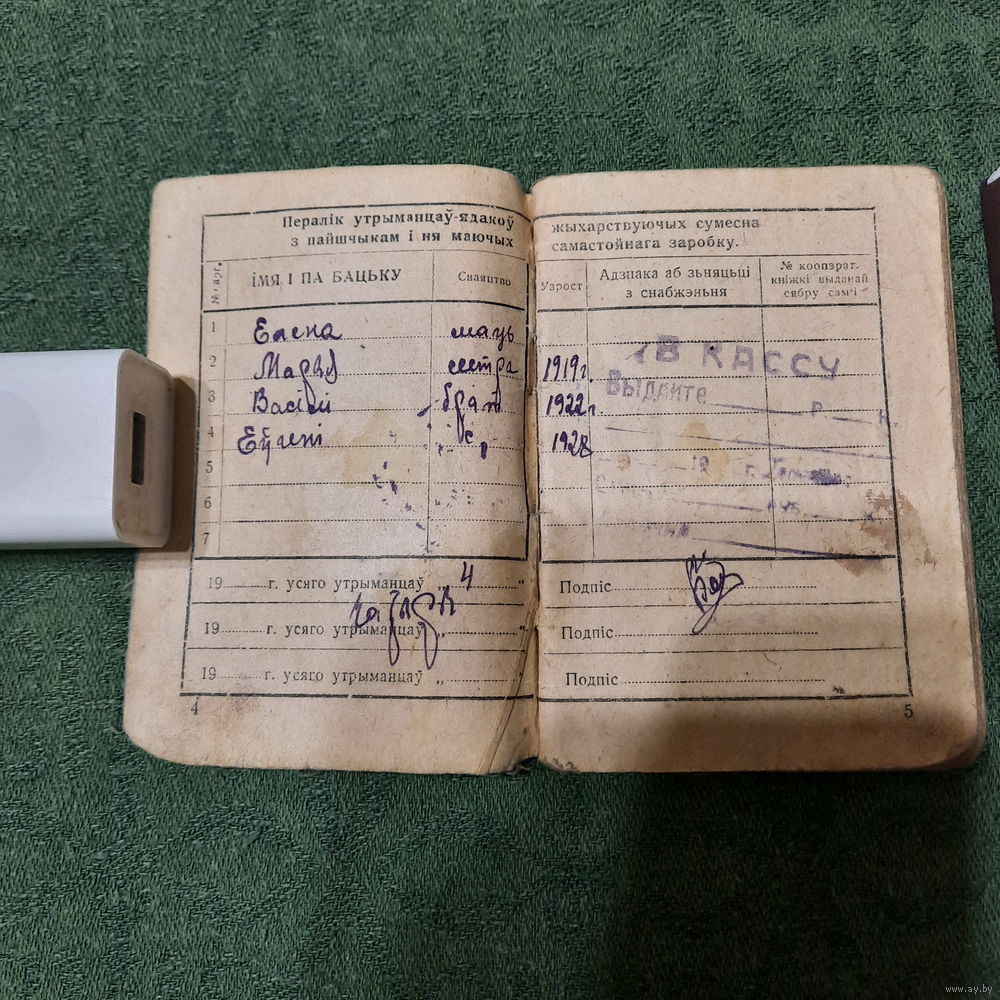 Пералік утрыманцаў-ядакоў жыхарствуючых сумесна
з пайшчыкам і ня маючых самастойнага заробку.
ІМЯ І ПА БАЦЬКУ Сваяцтво Узрост Адзнака аб зьняцьці з снабжэньня № кооперат. кніжкі выданай сябру сам'і
1 Елена маць
2 Марыя сестра 1919 г.
3 Васілі брат 1922 г.
4 Еўгені 1928
5
6
7
В КАССУ
ВЫДАЙТЕ
19 г. усяго утрыманцаў „ 4 “ Подпіс
19 г. усяго утрыманцаў „ “ Подпіс
19 г. усяго утрыманцаў „ “ Подпіс
4 5
www.ay.by